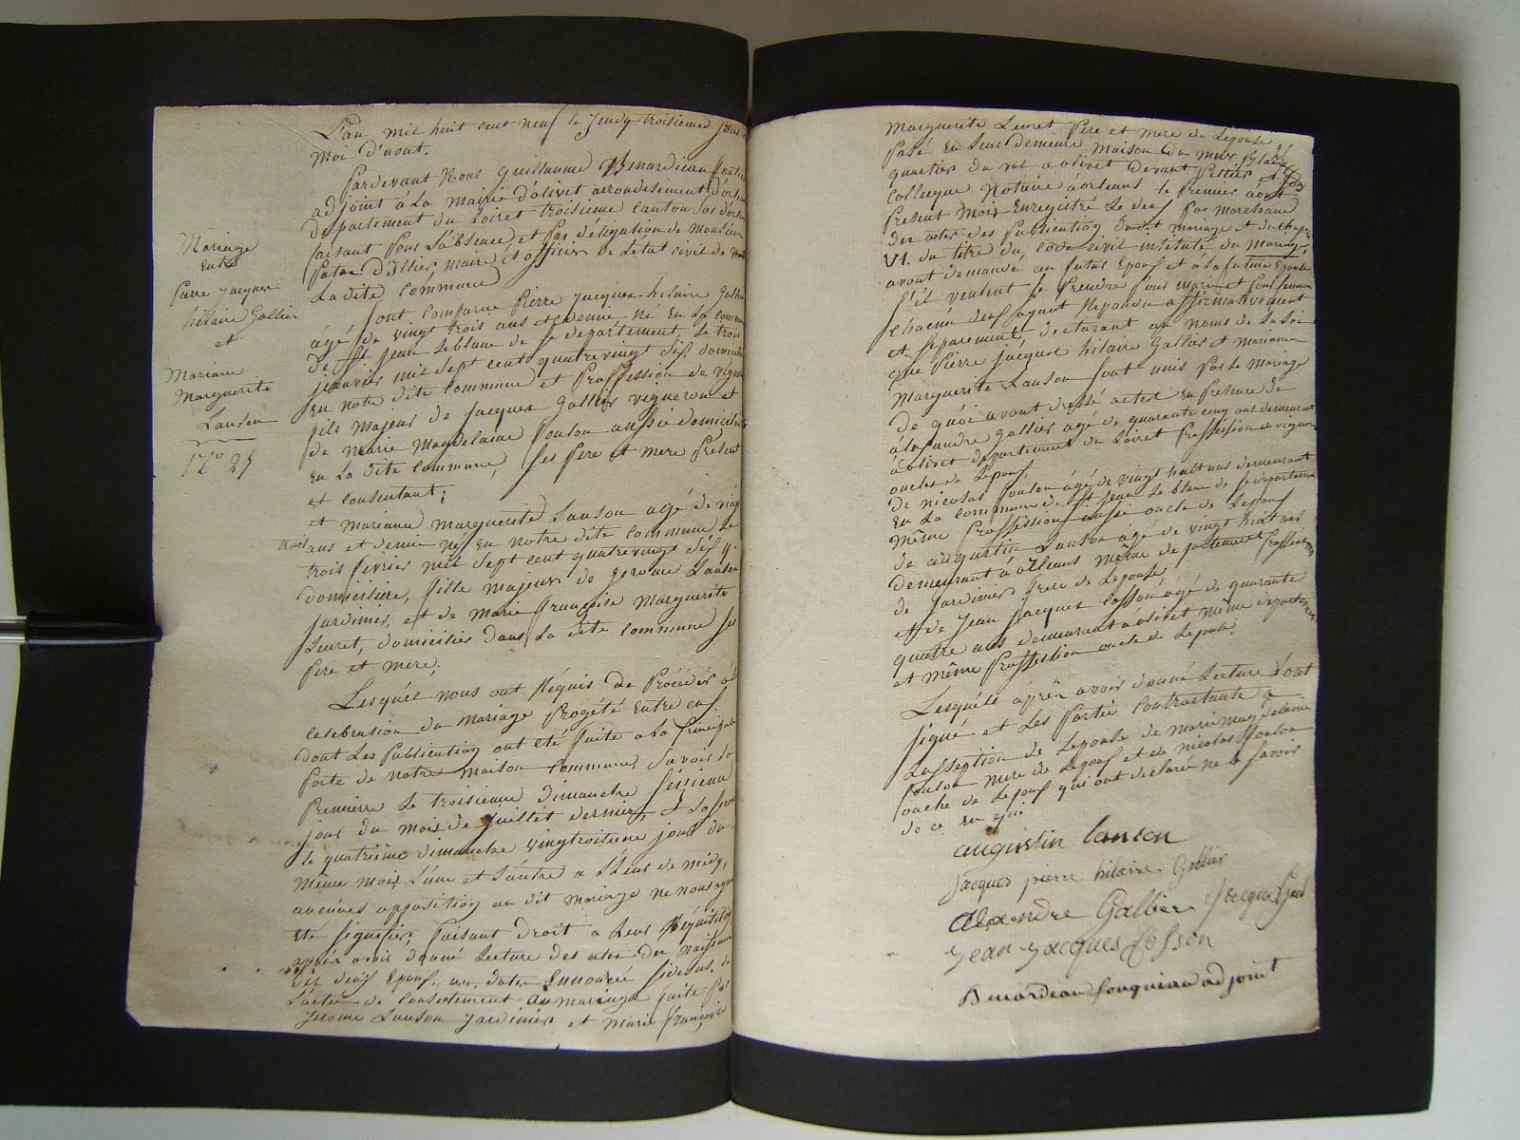 L'an mil huit cent neuf le Jeudy troisieme jour
moi d'aout.
Pardevant Nous Guillaume Benardeau
adjoint à La Mairie d'olivet arrondissement d'orl
departement du Loiret troisieme canton
faisant Pour L'absence, et Par delegation de Monsieur
Patas D'illiers Maire, et officier de Letat civil de
La dite commune
Mariage
Entre
Pierre Jacques
hilaire Gallier
et
Mariane
Marguerite
Lanson
N.o 25
Sont comparue Pierre jacques hilaire Gallier
agé de vingt trois ans et demie né En La commune
de St jean Leblanc de ce departement, Le trois
janvier mil sept cent quatrevingt six domicilié
En notre dite commune et Proffession de vigneron
fils majeur de Jacques Gallier vigneron et
de Marie Magdelaine Poulon aussie domiciliés
En La dite commune, Ses Pere et mere Présent
et consentant;
et Mariane Marguerite Lanson agé de vingt
trois ans et demie née En notre dite commune Le
trois fevrier mil sept cent quatrevingt six y
domiciliére, fille majeure de jerome Lanson
jardinier, et de Marie françoise Marguerite
Leuret, domiciliés dans La dite commune Ses
Pere et mere;
Lesquels nous ont Requis de Proceder a la
celebration du Mariage Progété Entre eux
dont Les Publication ont Eté faite a la Principale
Porte de notre maison commune, Savoir la
Premiere Le troisieme dimanche Seizieme
jour du mois de juillet dernier, et la
le quatriéme dimanche vingtroitieme jour du
même mois L'une et L'autre a L'heure de midy,
aucunes opposition au dit mariage ne nous ayant
Eté signifier, faisant droit a leur Réquisition
après avoir donné Lecture des actes de naissance
des deux Epoux, au dates Ennoncée Sidessus, de
L'acte de consentement au mariage faite Par
jerome Lanson jardinier et Marie françoise
Marguerite Leuret Pere et mere de Lepouse
Passé En leur demeure Maison du
quartier du val a olivet devant Pellier et Son
collegue Notaire à orleans le Premier aout
Present Mois Enregistré Le deux Par Marchand
des actes des Publication dudit mariage et du chap.
VI. du titre du code civil intitulé du Mariage,
avont demandé au futur Epoux et a la future Epouse
S'il veulent se Prendre Pour mari et Pour femme
chacun deux ayant Repondu affirmativement
et separement, declarant au noms de la loi
que Pierre jacques hilaire Gallier et Mariane
Marguerite Lanson sont unis Par le mariage
de quoi avont dressé actes En presence de
alexandre Gallier agé de quarante cinq ans demeurant
à olivet departement du Loiret Proffession de vigneron
oncle de Lepoux
de nicolas Poulon agé de vingt huit ans demeurant
En La commune de St jean Le blanc de ce departement
même Proffession aussi oncle de Lepoux
de augustin Lanson agé de vingt huit ans
demeurant à orleans même departement Proffession
de jardinier frere de Lepouse
et de jean jacques Cosson agé de quarante
quatre ans demeurant à olivet même departement
et même Proffession oncle de Lepouse.
Lesquels après avoir donné Lecture L'ont
signé et Les Partie contractante a
Lexseption de Lepouse de marie magdelaine
Poulon mere de Lepoux et de nicolas Poulon
oncle de Lepoux qui ont declaré ne le savoir
de ce en qui
augustin lanson
Jacques pierre hilaire Gallier
Alexandre Gallier Jacques
jean jacques Cosson
Benardeau fougneau adjoint